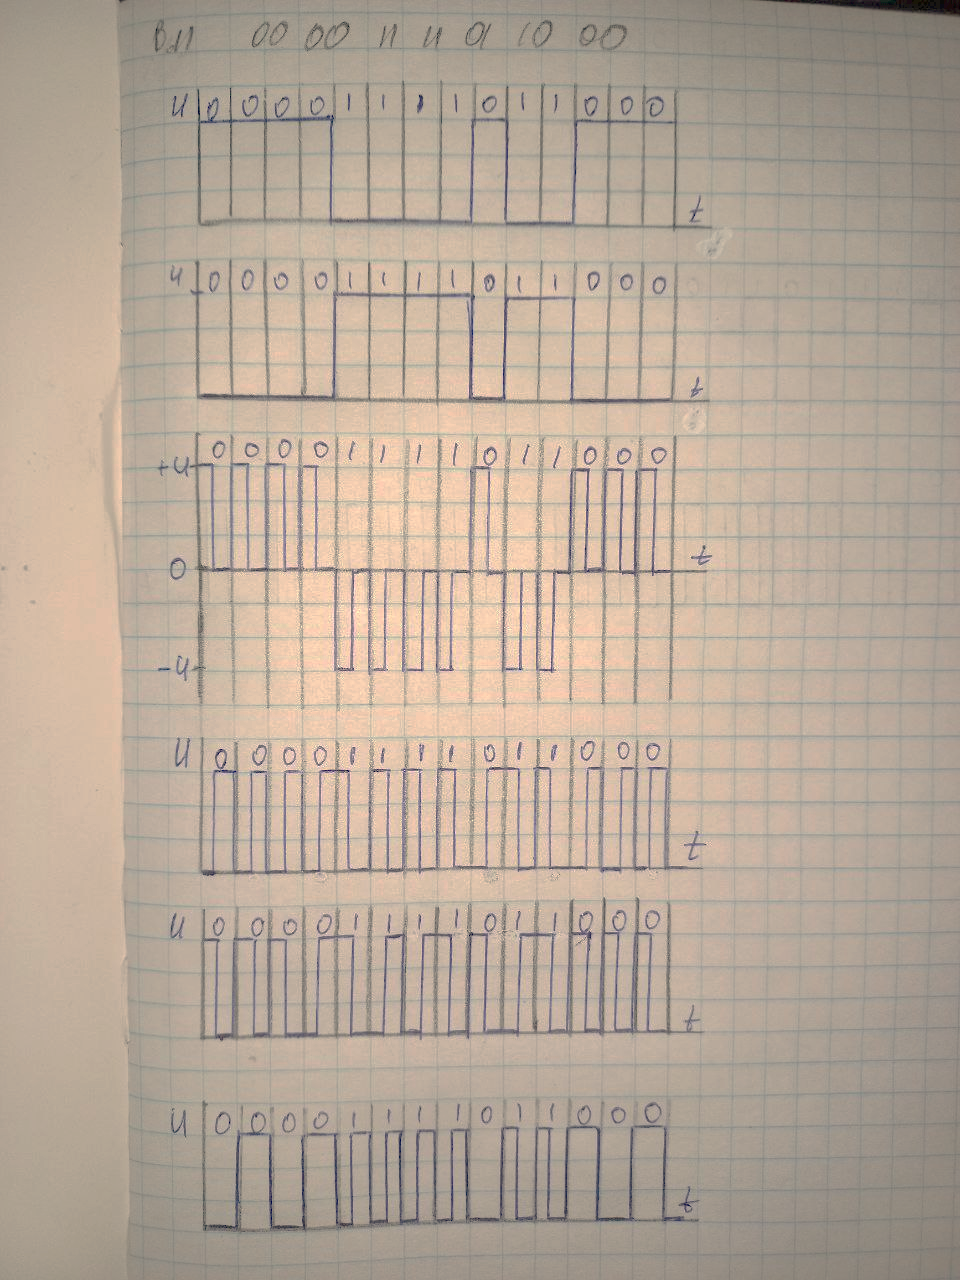 00 00 11 11 01 10 00
U 0 0 0 0 1 1 1 1 0 1 1 0 0 0
t
U 0 0 0 0 1 1 1 1 0 1 1 0 0 0
t
0 0 0 0 1 1 1 1 0 1 1 0 0 0
+U
t
0
-U
U 0 0 0 0 1 1 1 1 0 1 1 0 0 0
t
U 0 0 0 0 1 1 1 1 0 1 1 0 0 0
t
U 0 0 0 0 1 1 1 1 0 1 1 0 0 0
t